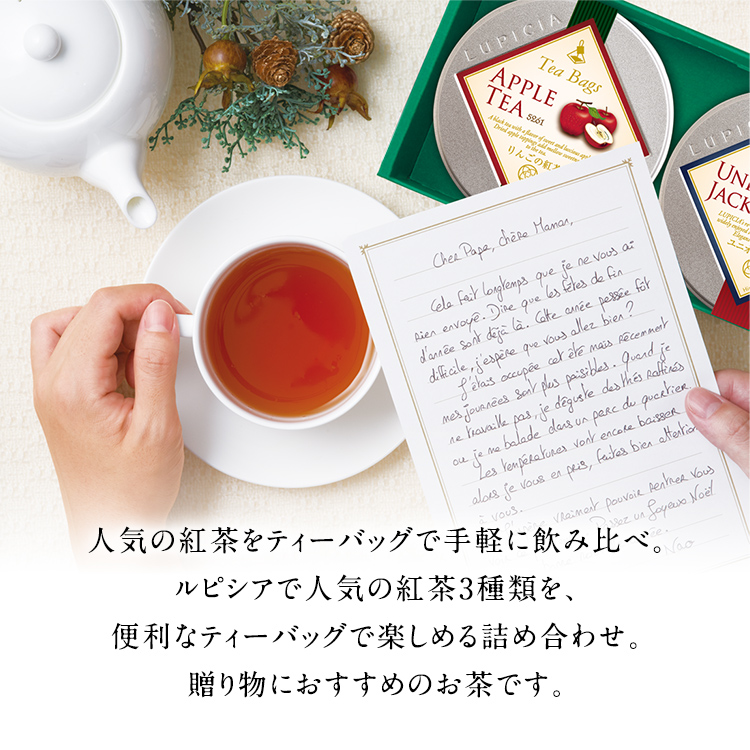 LUPICIA
Tea Bags
APPLE
TEA 5261
A black tea with a flavor of sweet and luscious
Dried apple toppings add mellow
to the tea.
りんごの紅茶
LUPICIA
UNI
JACK
LUPICIA's
ユニオ
Cher Papa, chère Maman,
Cela fait longtemps que je ne vous ai
rien envoyé. Dire que les fêtes de fin
d'année sont déjà là. Cette année passée fût
difficile, j'espère que vous allez bien ?
J'étais occupée cet été mais récemment
mes journées sont plus paisibles. Quand je
ne travaille pas, je déguste des thés raffinés
ou je me balade dans un parc du quartier.
Les températures vont encore baisser
alors je vous en pris, faites bien attention
à vous.
vraiment pouvoir rentrer vous
Joyeux Noël
人気の紅茶をティーバッグで手軽に飲み比べ。
ルピシアで人気の紅茶3種類を、
便利なティーバッグで楽しめる詰め合わせ。
贈り物におすすめのお茶です。